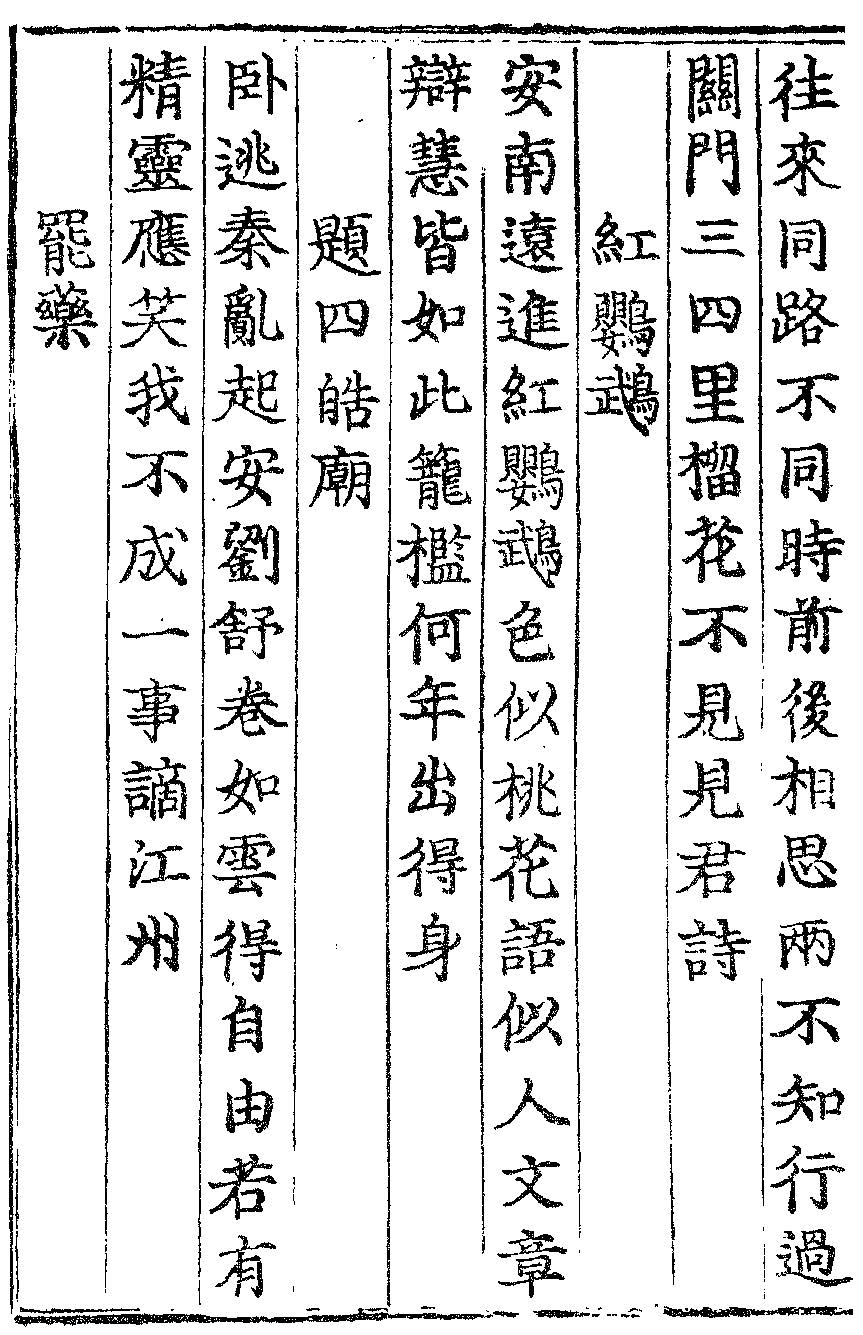 往來同路不同時前後相思兩不知行過
關門三四里榴花不見見君詩
紅鸚鵡
安南遠進紅鸚鵡色似桃花語似人文章
辯慧皆如此籠檻何年出得身
題四皓廟
卧逃秦亂起安劉舒卷如雲得自由若有
精靈應笑我不成一事謫江州
罷藥